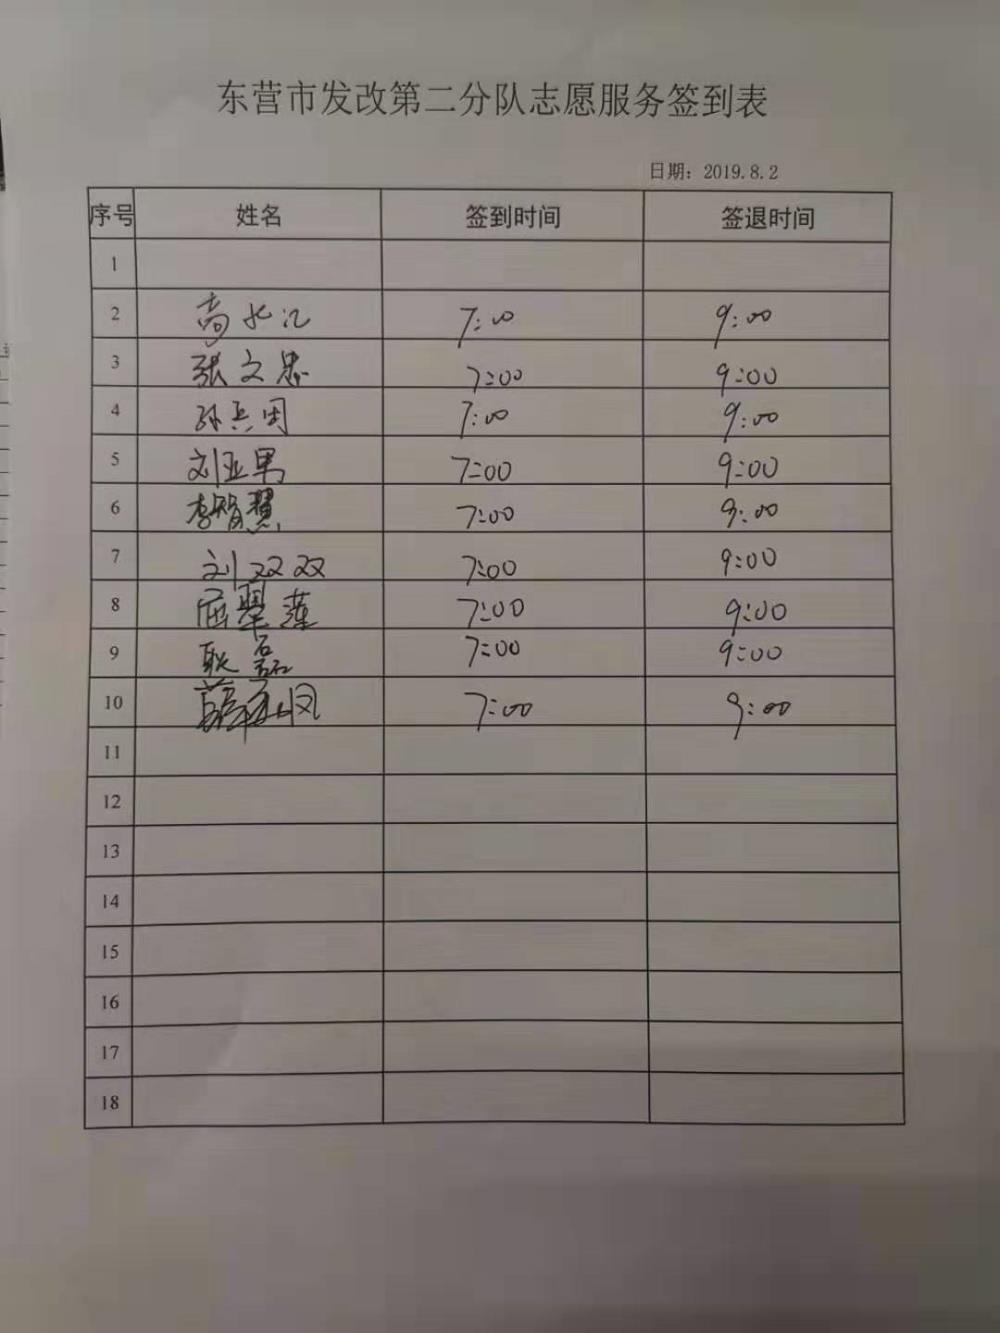 东营市发改第二分队志愿服务签到表
日期：2019.8.2
序号 姓名 签到时间 签退时间
1
2 高 7:00 9:00
3 张文忠 7:00 9:00
4 孙兵田 7:00 9:00
5 刘亚男 7:00 9:00
6 李智慧 7:00 9:00
7 刘双双 7:00 9:00
8 屈翠莲 7:00 9:00
9 耿磊 7:00 9:00
10 薛 凤 7:00 9:00
11
12
13
14
15
16
17
18